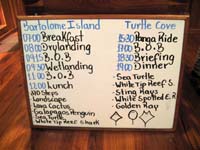 Bartolome Island
07:00 Breakfast
08:00 Drylanding
09:15 B.O.B
09:30 Wetlanding
11:00 B.O.B
12:00 Lunch
Steps
Landscape
Lava Cactus
Galapagos Penguin
Sea Turtle
White Tip Reef Shark
Turtle Cove
15:30 Panga Ride
17:00 B.O.B
18:30 Briefing
19:00 Dinner
-Sea Turtle
-White Tip Reef S.
-Sting Rays
-White Spotted E. R
-Golden Ray